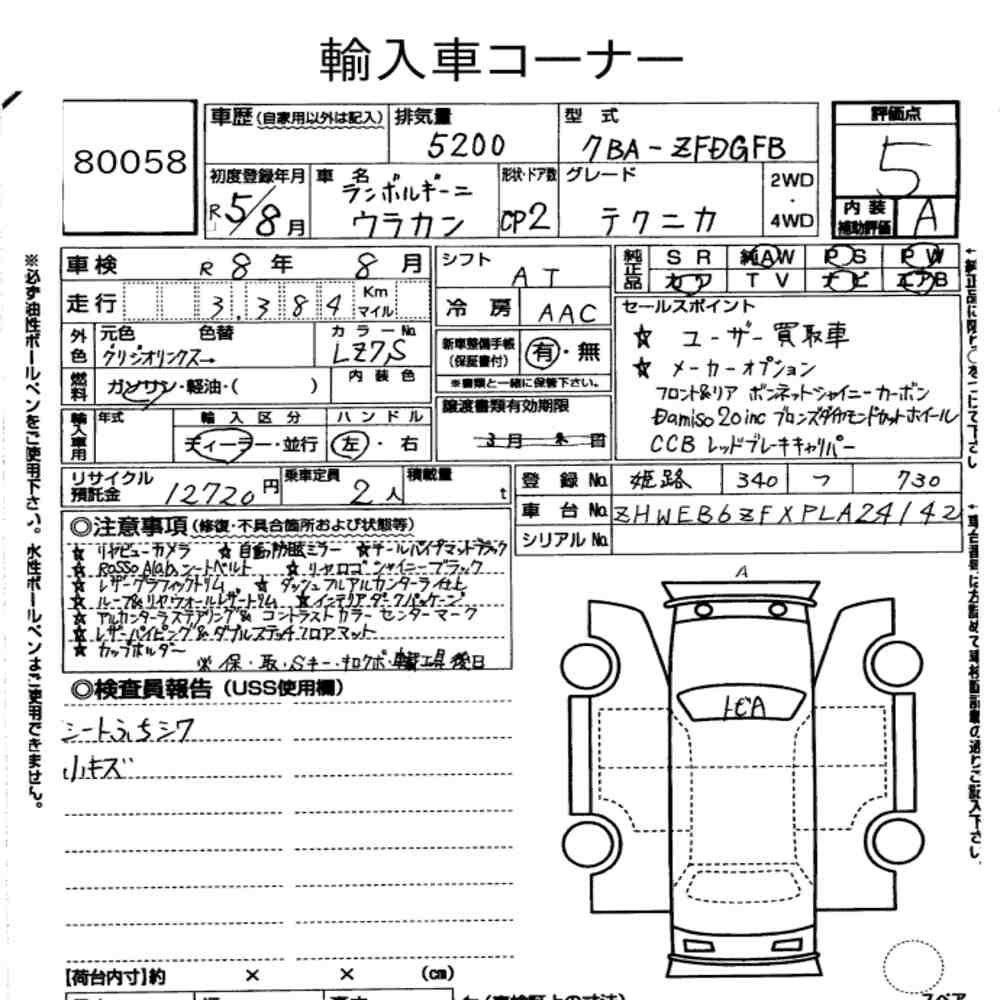 輸入車コーナー
80058
車歴 (自家用以外は記入)
排気量
5200
型式
7BA-ZFDGFB
評価点
5
初度登録年月
R 5/8月
車名
ランボルギーニ
ウラカン
形状・ドア数
CP2
グレード
テクニカ
2WD
・
4WD
内装
補助評価
A
車検 R 8年 8月
シフト AT
純正品
SR 純AW PS PW
カワ TV ナビ エアB
走行 3,384 Km マイル
冷房 AAC
セールスポイント
☆ ユーザー買取車
☆ メーカーオプション
フロント&リア ボンネットシャイニーカーボン
Damiso 20inc ブロンズダイヤモンドカットホイール
CCB レッドブレーキキャリパー
外色
元色 色替 カラーNo.
グリジオリンクス→
LZ7S
新車整備手帳
(保証書付)
有・無
※書類と一緒に保管下さい。
燃料
ガソリン・軽油・( )
内装色
輸入車用
年式
輸入区分
ディーラー・並行
ハンドル
左・右
譲渡書類有効期限
3月末日
リサイクル
預託金
12720円
乗車定員
2人
積載量
t
登録No. 姫路 340 つ 730
車台No. ZHWEB6ZFXPLA24142
シリアルNo.
◎注意事項 (修復・不具合箇所および状態等)
☆ リヤビューカメラ ☆ 自動防眩ミラー ☆テールパイプマットブラック
☆ Rosso Alala シートベルト ☆ リヤロゴシャイニーブラック
☆ レザーグラフィックトリム ☆ ダッシュフルアルカンターラ仕上
☆ ルーフ&リヤウォールレザートリム ☆インテリアダークパッケージ
☆ アルカンターラステアリング& コントラストカラー センターマーク
☆ レザーパイピング&ダブルステッチフロアマット
☆ カップホルダー
※ 保・取・Sキー・ナロクボ・輪工具後日
◎検査員報告 (USS使用欄)
シートふちシワ
小キズ
A
トビA
【荷台内寸】約 × × (cm)
スペア
※必ず油性ボールペンをご使用下さい。水性ボールペンはご使用できません。